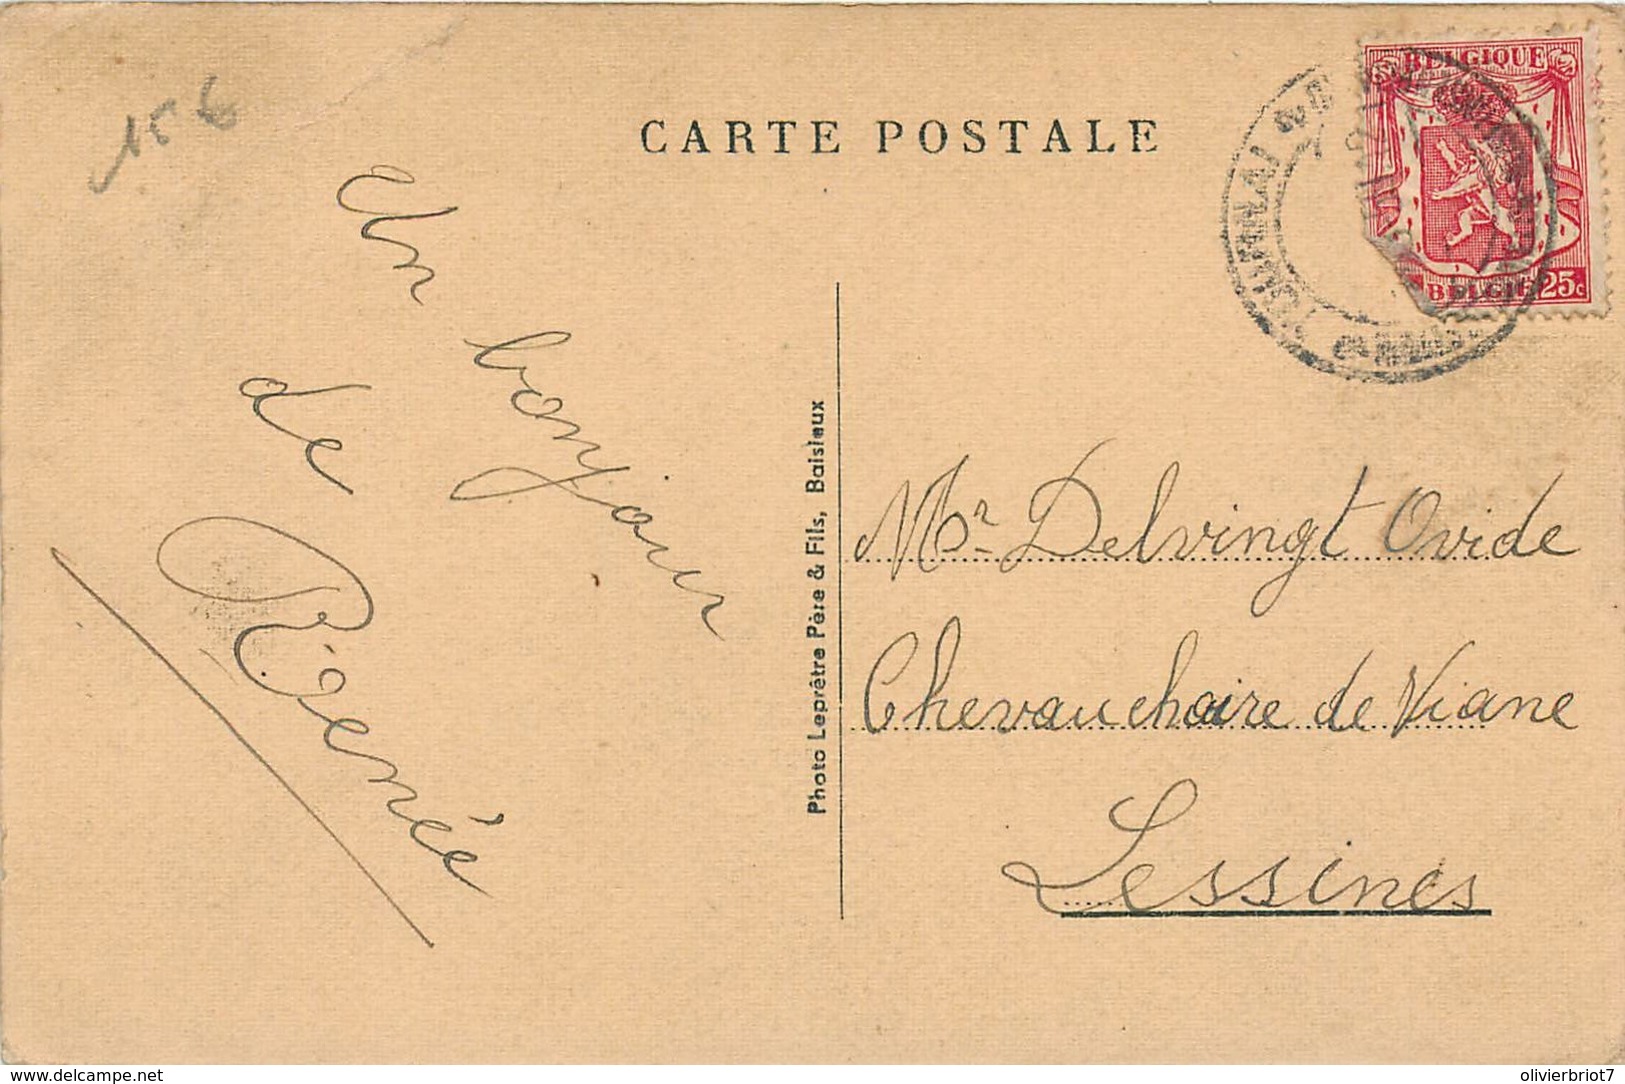 15 €
CARTE POSTALE
BELGIQUE
BELGIE 25c
TOURNAI
Un bonjour
de
Renée
Photo Leprêtre Père & Fils, Baisieux
Mr Delvingt Ovide
Chevauchoire de Viane
Lessines
https://www.delcampe.net
olivierbriot7